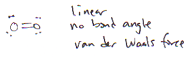 linear
Ö=Ö no bond angle
van der Waals force